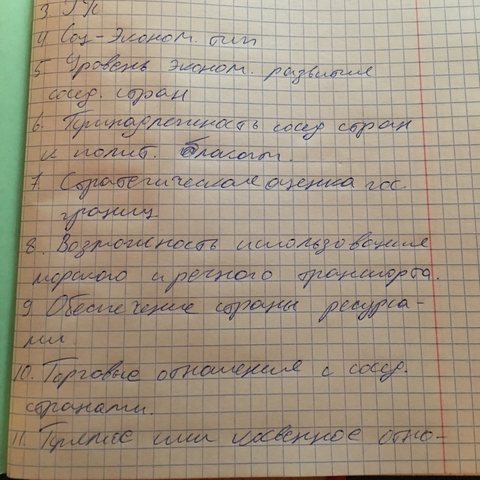 3
4 Соц-эконом. тип
5. Уровень эконом. развития
сосед. стран
6. Принадлежность сосед стран
к полит. блокам.
7. Стратегическая оценка гос.
границ
8. Возможность использования
морского и речного транспорта.
9 Обеспечение страны ресурса-
ми.
10. Торговые отношения с сосед.
странами.
11. Прямое или косвенное отно-